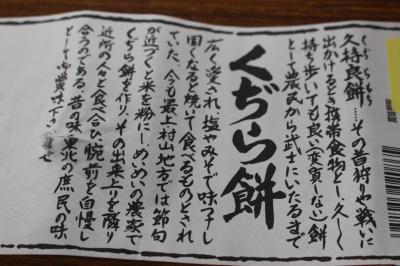 くぢらもち
久持良餅…その昔狩りや戦いに
出かけるとき携帯食物として久しく
持ち歩いても良い(変質しない)餅
として農民から武士にいたるまで
くぢら餅
広く愛され、塩やみそで味つけし
固くなると焼いて食べるものとされ
ていた、今も最上村山地方では節句
が近づくと米を粉にし、めいめいの農家で
くぢら餅を作り、その出来上りを隣り
近所の人々と食べ合ひ腕前を自慢し
合うのである、昔の味、東北の庶民の味
として御賞味下さいませ